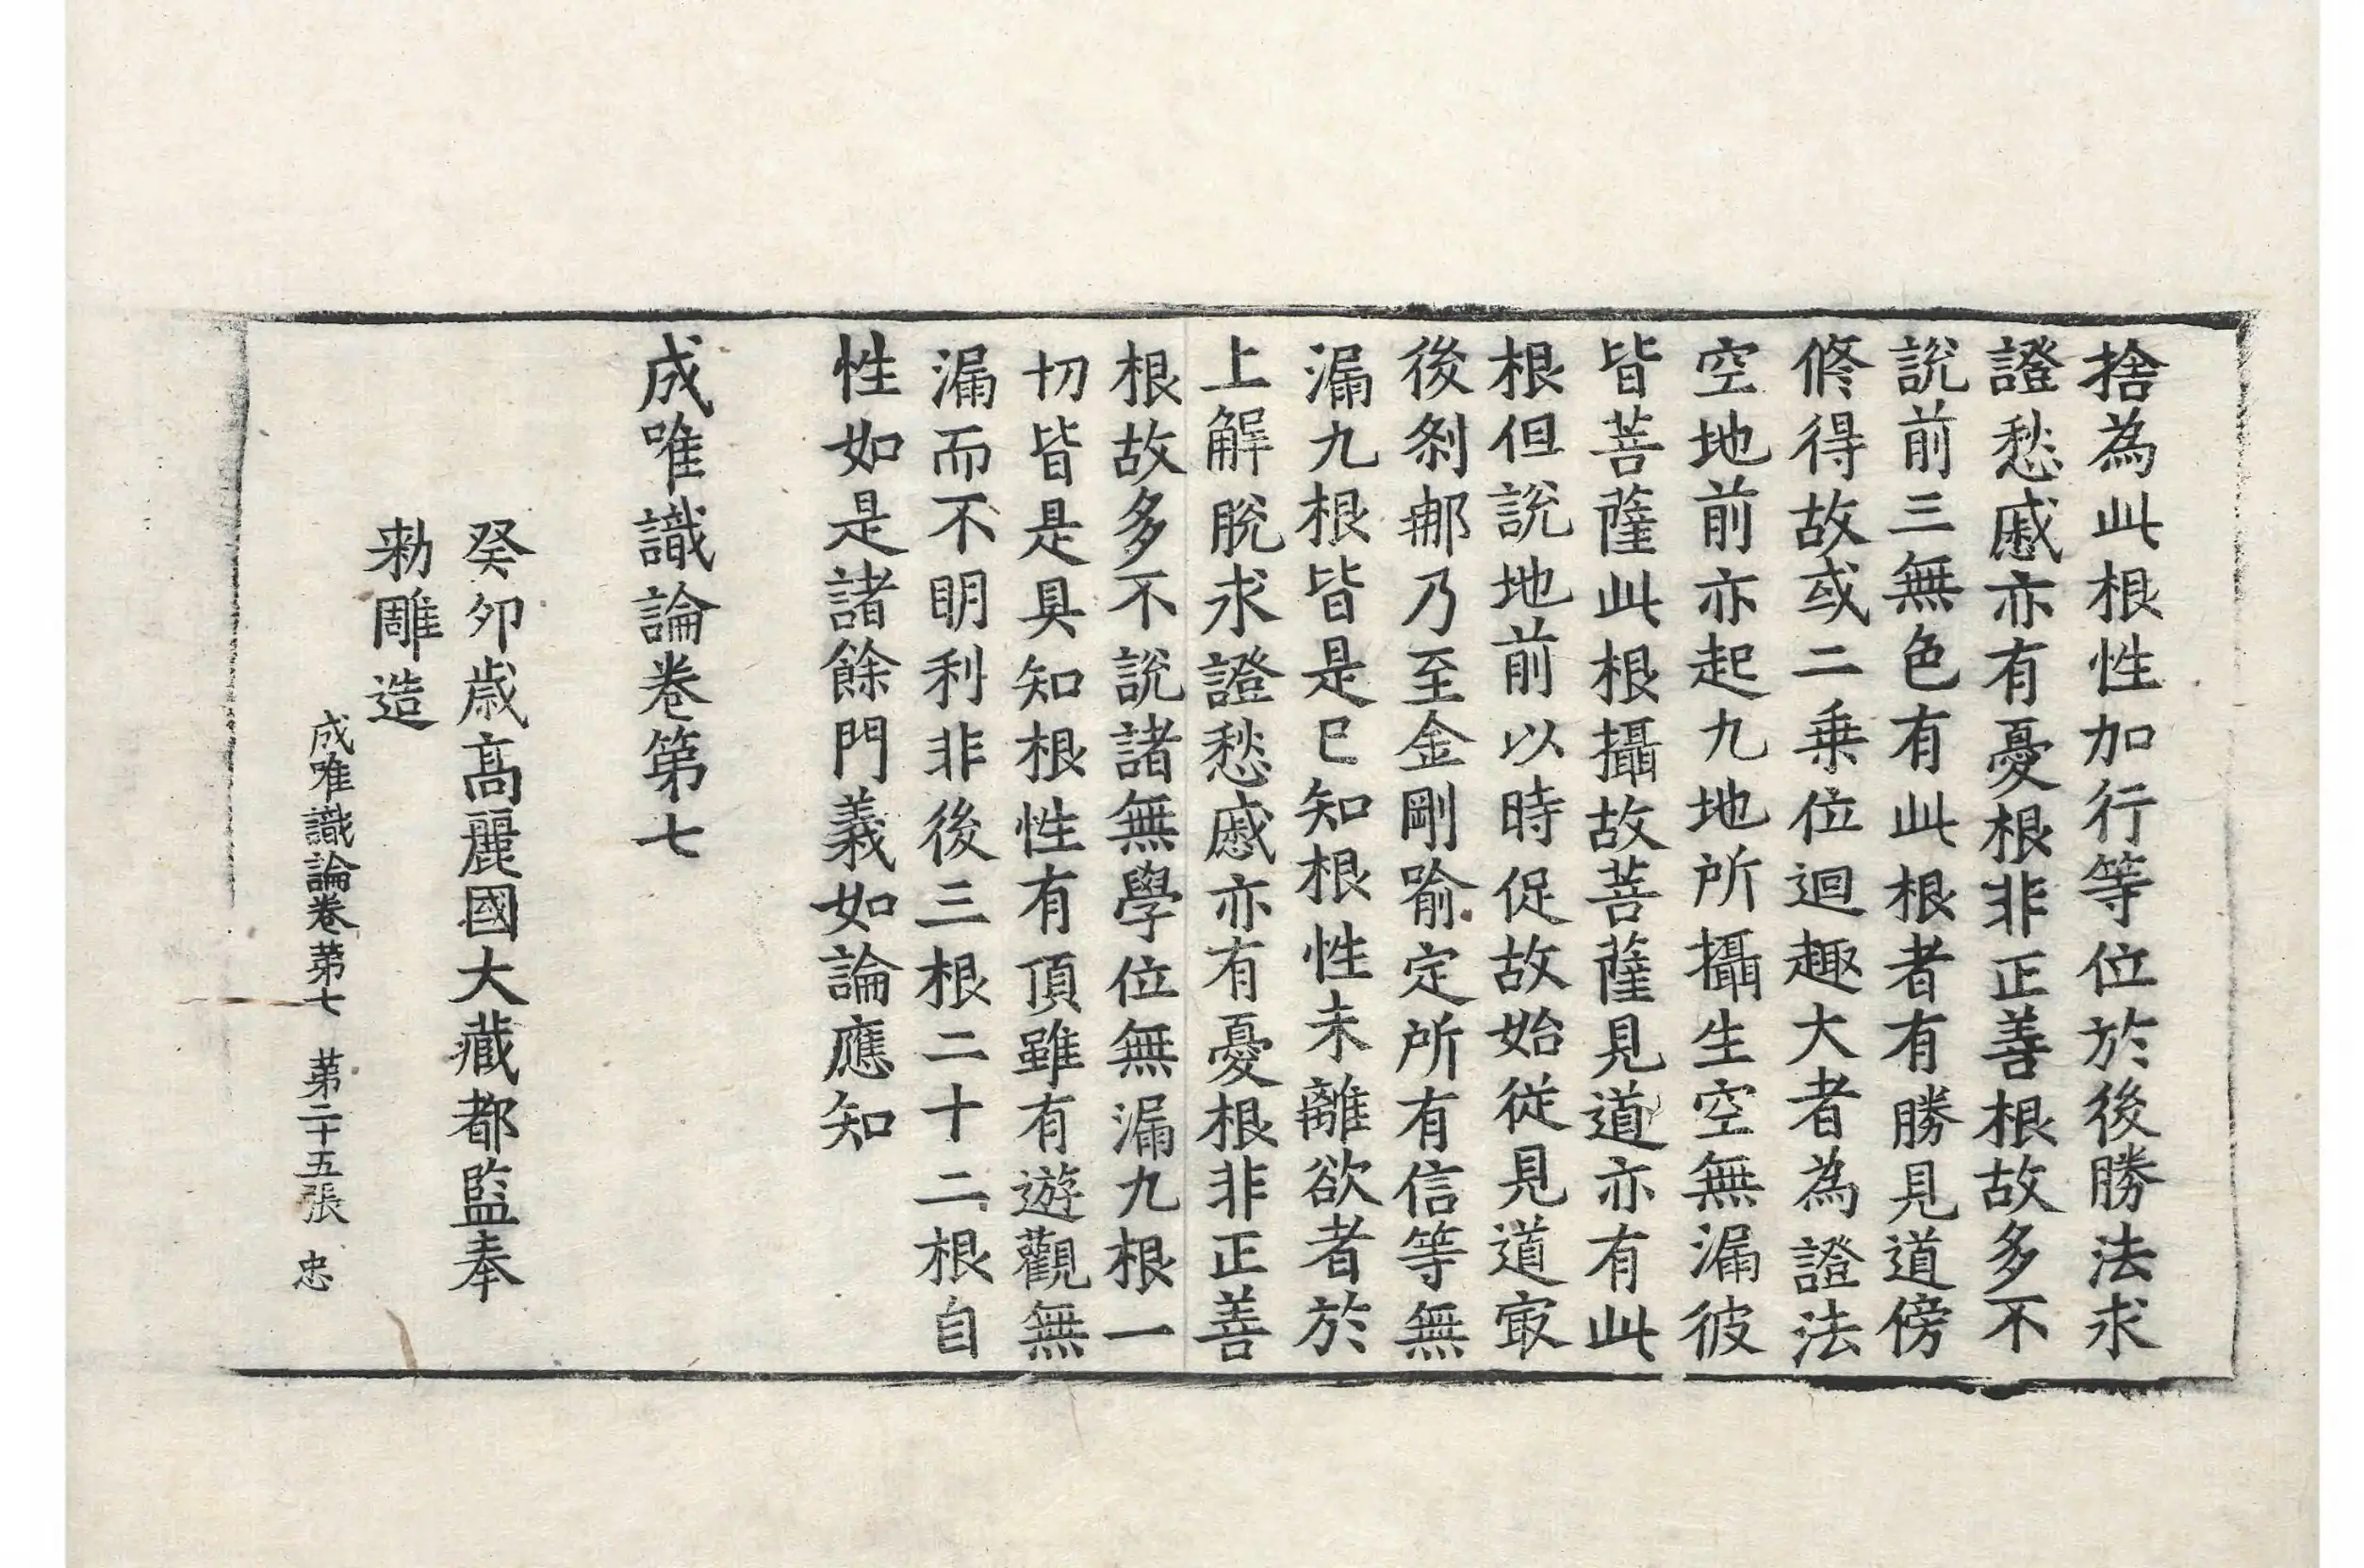 捨為此根性加行等位於後勝法求
證愁慼亦有憂根非正善根故多不
說前三無色有此根者有勝見道傍
修得故或二乘位迴趣大者為證法
空地前亦起九地所攝生空無漏彼
皆菩薩此根攝故菩薩見道亦有此
根但說地前以時促故始從見道㝡
後刹那乃至金剛喻定所有信等無
漏九根皆是已知根性未離欲者於
上解脫求證愁慼亦有憂根非正善
根故多不說諸無學位無漏九根一
切皆是具知根性有頂雖有遊觀無
漏而不明利非後三根二十二根自
性如是諸餘門義如論應知
成唯識論卷第七
癸卯歲高麗國大藏都監奉
勑雕造
成唯識論卷第七 第二十五張 忠